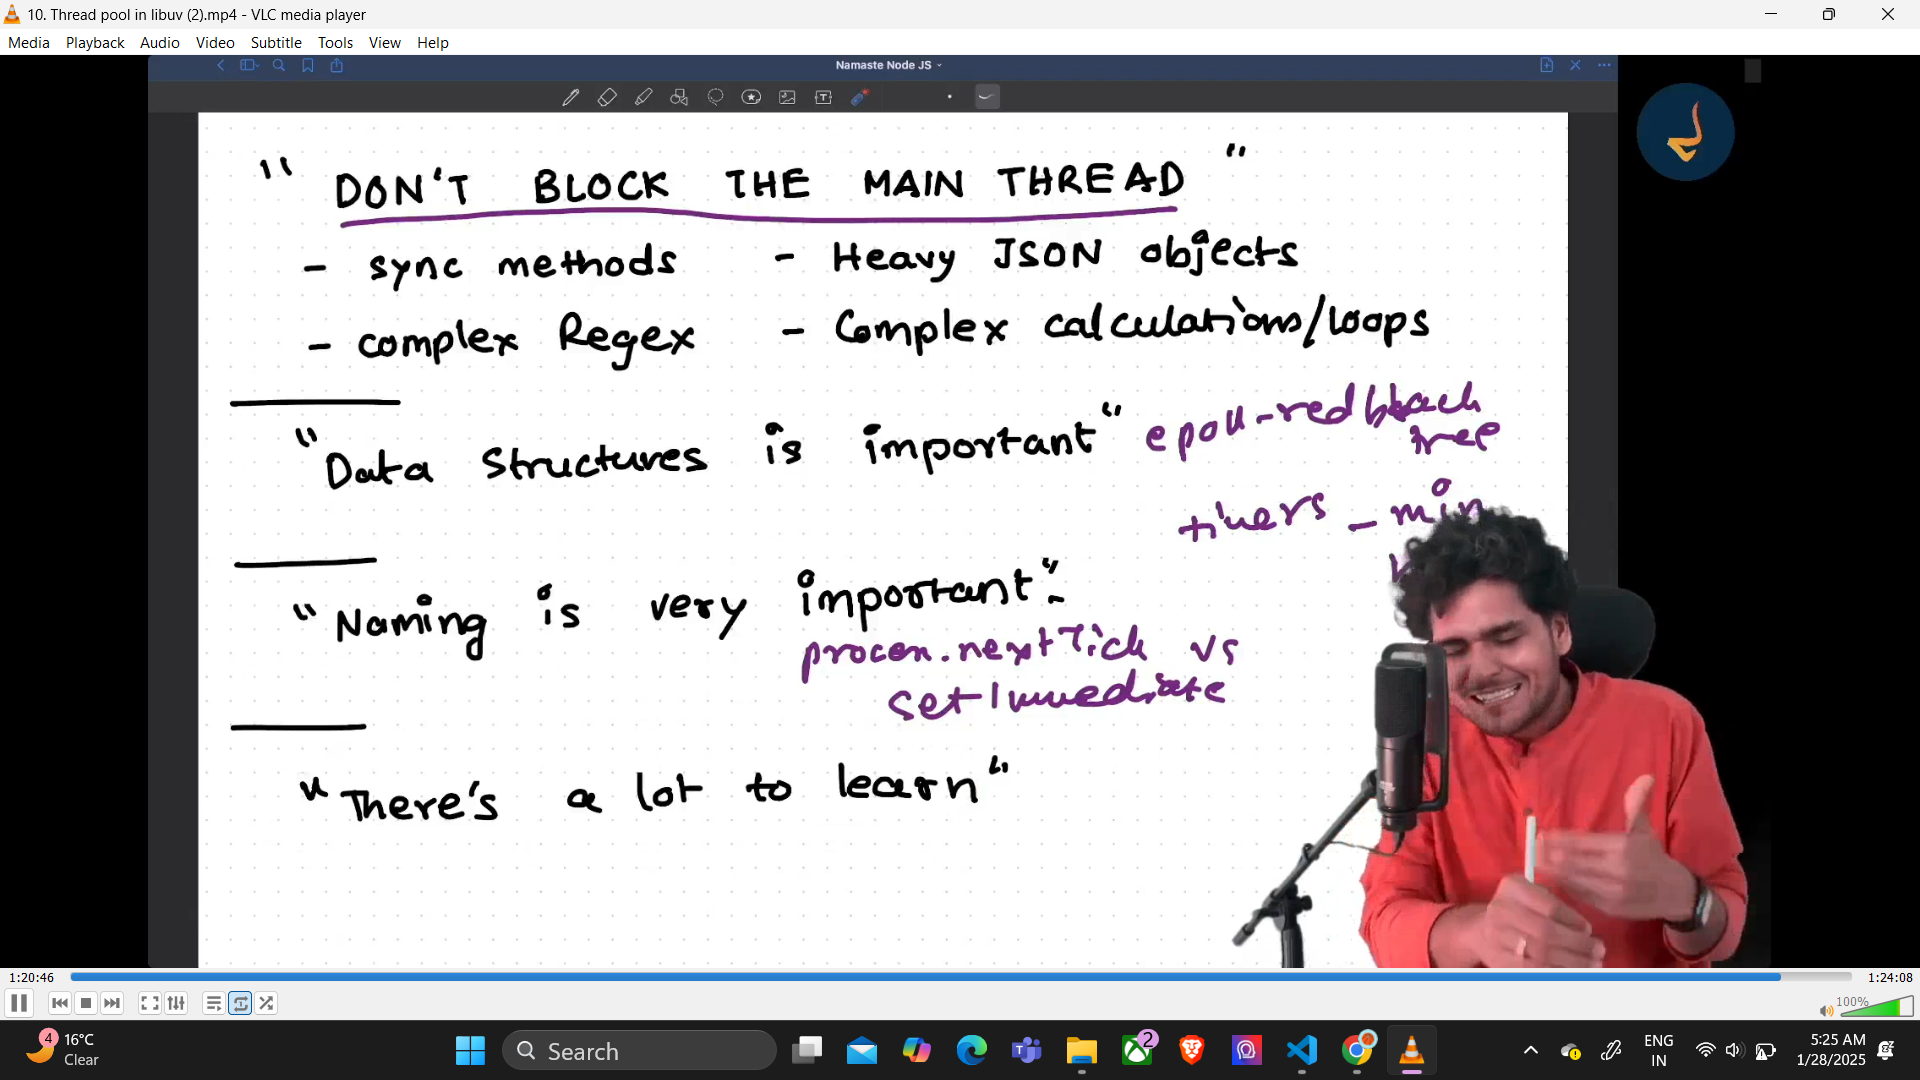 10. Thread pool in libuv (2).mp4 - VLC media player
Media Playback Audio Video Subtitle Tools View Help
Namaste Node JS
" DON'T BLOCK THE MAIN THREAD "
- sync methods - Heavy JSON objects
- complex Regex - Complex calculations/loops
"Data Structures is important" epoll - red black
tree
timers - min
"Naming is very important" :-
process.nextTick vs
setImmediate
"There's a lot to learn"
1:20:46 1:24:08
100%
4 16°C
Clear
Search
2
ENG
IN
5:25 AM
1/28/2025